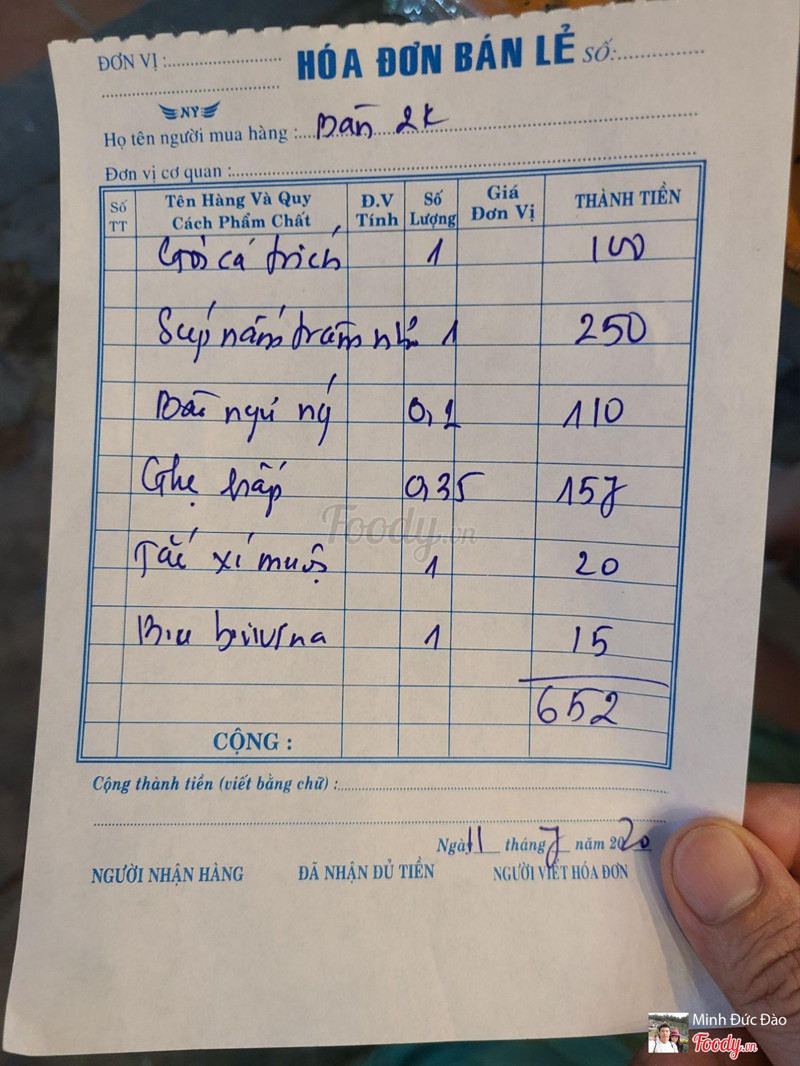 ĐƠN VỊ :
HÓA ĐƠN BÁN LẺ SỐ:
NY
Họ tên người mua hàng : Bàn 2K
Đơn vị cơ quan :
Số TT
Tên Hàng Và Quy Cách Phẩm Chất
Đ.V Tính
Số Lượng
Giá Đơn Vị
THÀNH TIỀN
Gỏi cá trích 1 100
Súp nấm tràm 1 250
ngư 110
Ghẹ hấp 0,35 157
Tắc xí muội 1 20
1 15
652
CỘNG :
Cộng thành tiền (viết bằng chữ) :
Ngày 11 tháng 7 năm 2020
NGƯỜI NHẬN HÀNG ĐÃ NHẬN ĐỦ TIỀN NGƯỜI VIẾT HÓA ĐƠN
Foody.vn
Minh Đức Đào
Foody.vn